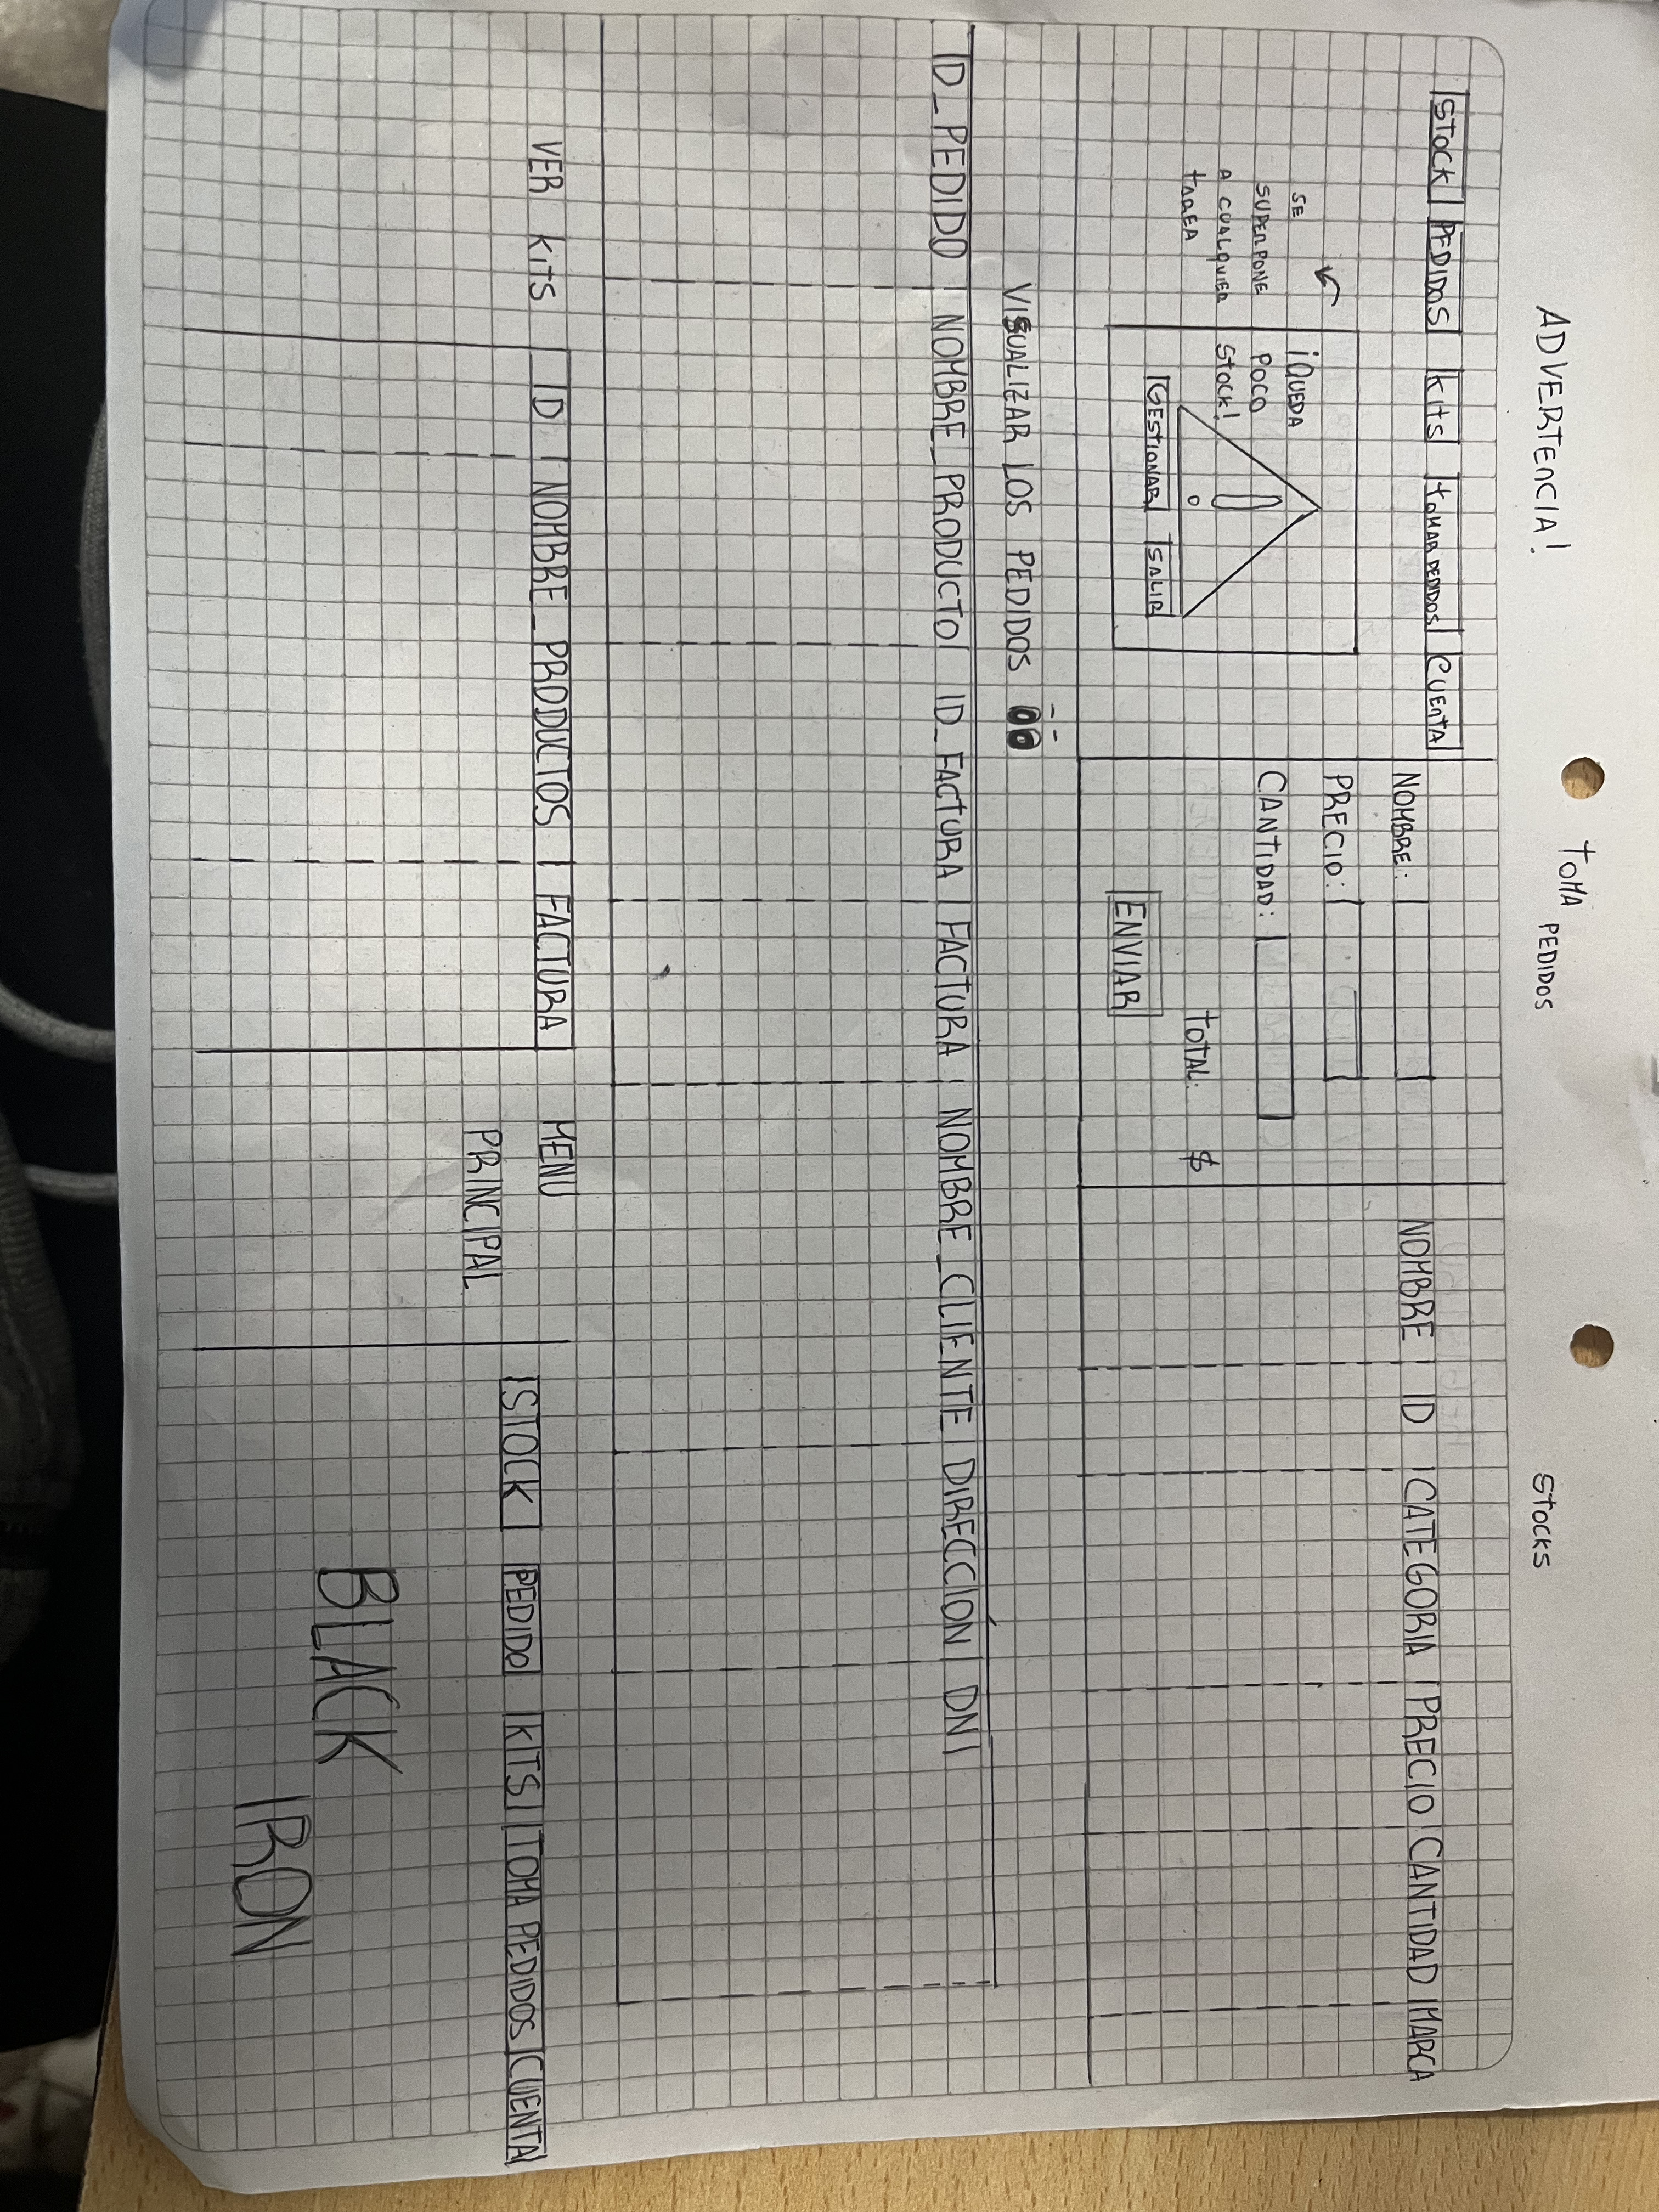 ADVERTENCIA!
TOMA PEDIDOS
STOCKS
STOCK PEDIDOS KITS TOMAR PEDIDOS CUENTA
SE
SUPERPONE
A CUALQUIER
TAREA
¡QUEDA
POCO
STOCK!
GESTIONAR SALIR
NOMBRE:
PRECIO:
CANTIDAD:
TOTAL: $
ENVIAR
NOMBRE ID CATEGORIA PRECIO CANTIDAD MARCA
VISUALIZAR LOS PEDIDOS
ID_PEDIDO NOMBRE_PRODUCTO ID_FACTURA FACTURA NOMBRE_CLIENTE DIRECCIÓN DNI
VER KITS
ID NOMBRE_PRODUCTOS FACTURA
MENU
PRINCIPAL
STOCK PEDIDO KITS TOMA PEDIDOS CUENTA
BLACK
IRON